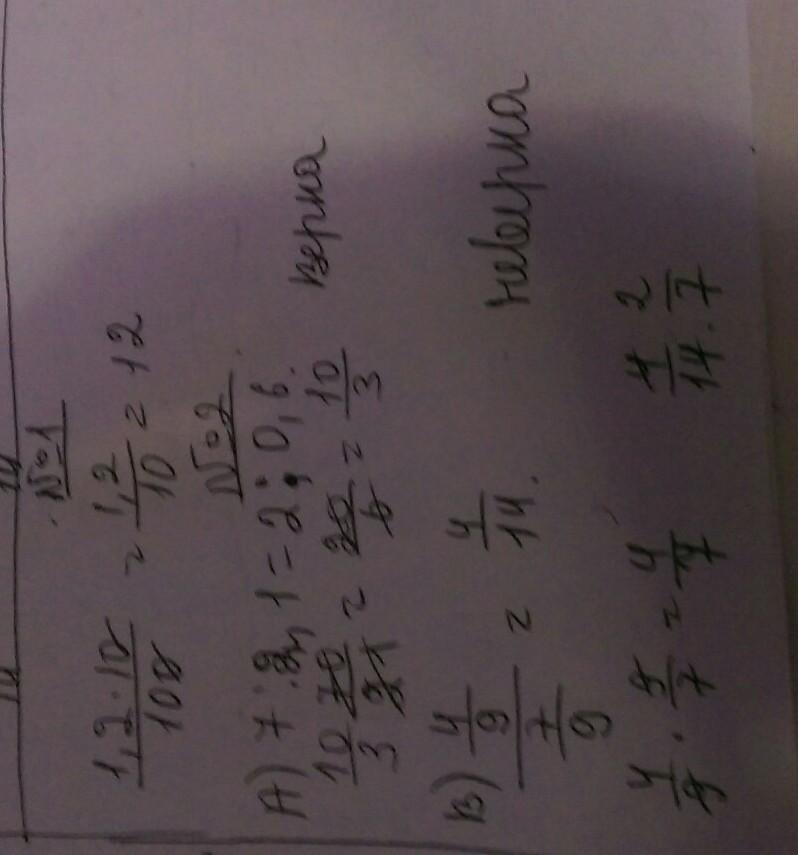 №1
1,2·10/100 = 1,2/10 = 12
№2
А) 7:2,1=2:0,6. верна
10/3 70/21 = 20/6 = 10/3
В) 4/9 / 7/9 = 4/14. неверна
4/9 · 9/7 = 4/7 4/14 · 2/7